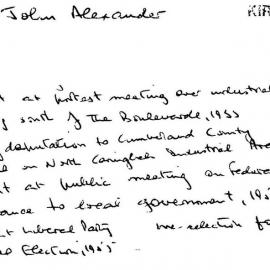 John Alexander
KIR
at protest meeting over industrial
south of the Boulevarde, 1955
deputation to Cumberland County
on North Caringbah Industrial Area
at public meeting on Federal
to local government, 195
Liberal Party pre-selection fo
Election, 1955